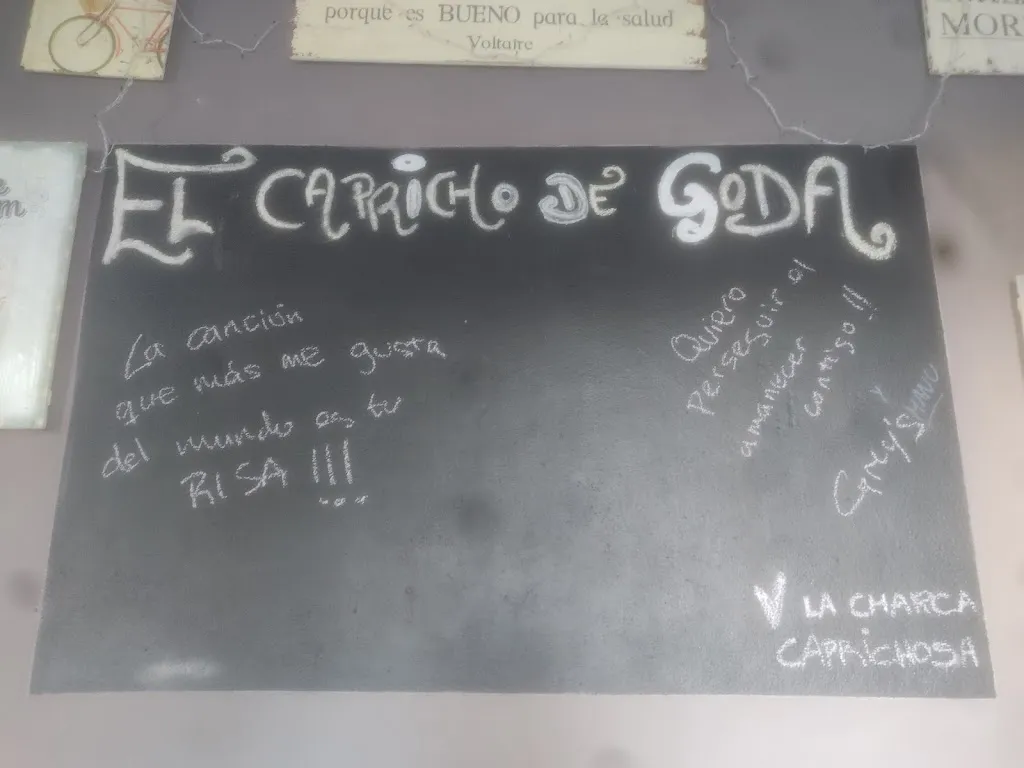 porque es BUENO para la salud
Voltaire
MOR
EL CAPRICHO DE GODA
La canción
que más me gusta
del mundo es tu
RISA !!!
...
Quiero
perseguir el
amanecer
contigo !!
Grey y
LA CHARCA
CAPRICHOSA